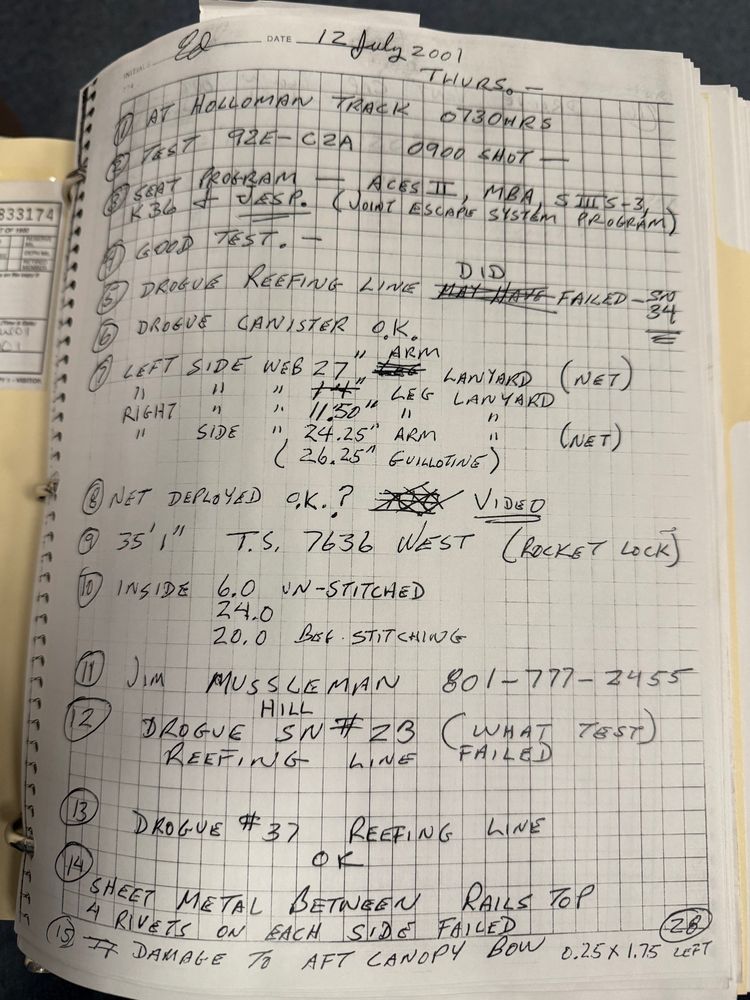 INITIALS DATE 12 July 2001
THURS. —
① AT HOLLOMAN TRACK 0730HRS
② TEST 92E-C2A 0900 SHOT —
③ SEAT PROGRAM — ACES II, MBA, SIIIS-3,
K36 + JESP. (JOINT ESCAPE SYSTEM PROGRAM)
④ GOOD TEST. —
DID
⑤ DROGUE REEFING LINE MAY HAVE FAILED — SN
34
⑥ DROGUE CANISTER O.K.
⑦ LEFT SIDE WEB 27" LEG ARM LANYARD (NET)
" " " 14" LEG LANYARD
RIGHT " " 11.50" " "
" SIDE " 24.25" ARM " (NET)
(26.25" GUILLOTINE)
⑧ NET DEPLOYED O.K.? VIDEO
⑨ 35'1" T.S. 7636 WEST (ROCKET LOCK)
⑩ INSIDE 6.0 UN-STITCHED
24.0
20.0 BEG. STITCHING
⑪ JIM MUSSLEMAN 801-777-2455
HILL
⑫ DROGUE SN #23 (WHAT TEST)
REEFING LINE FAILED
⑬ DROGUE #37 REEFING LINE
OK
⑭ SHEET METAL BETWEEN RAILS TOP
4 RIVETS ON EACH SIDE FAILED
㉘
⑮ DAMAGE TO AFT CANOPY BOW 0.25 X 1.75 LEFT
833174